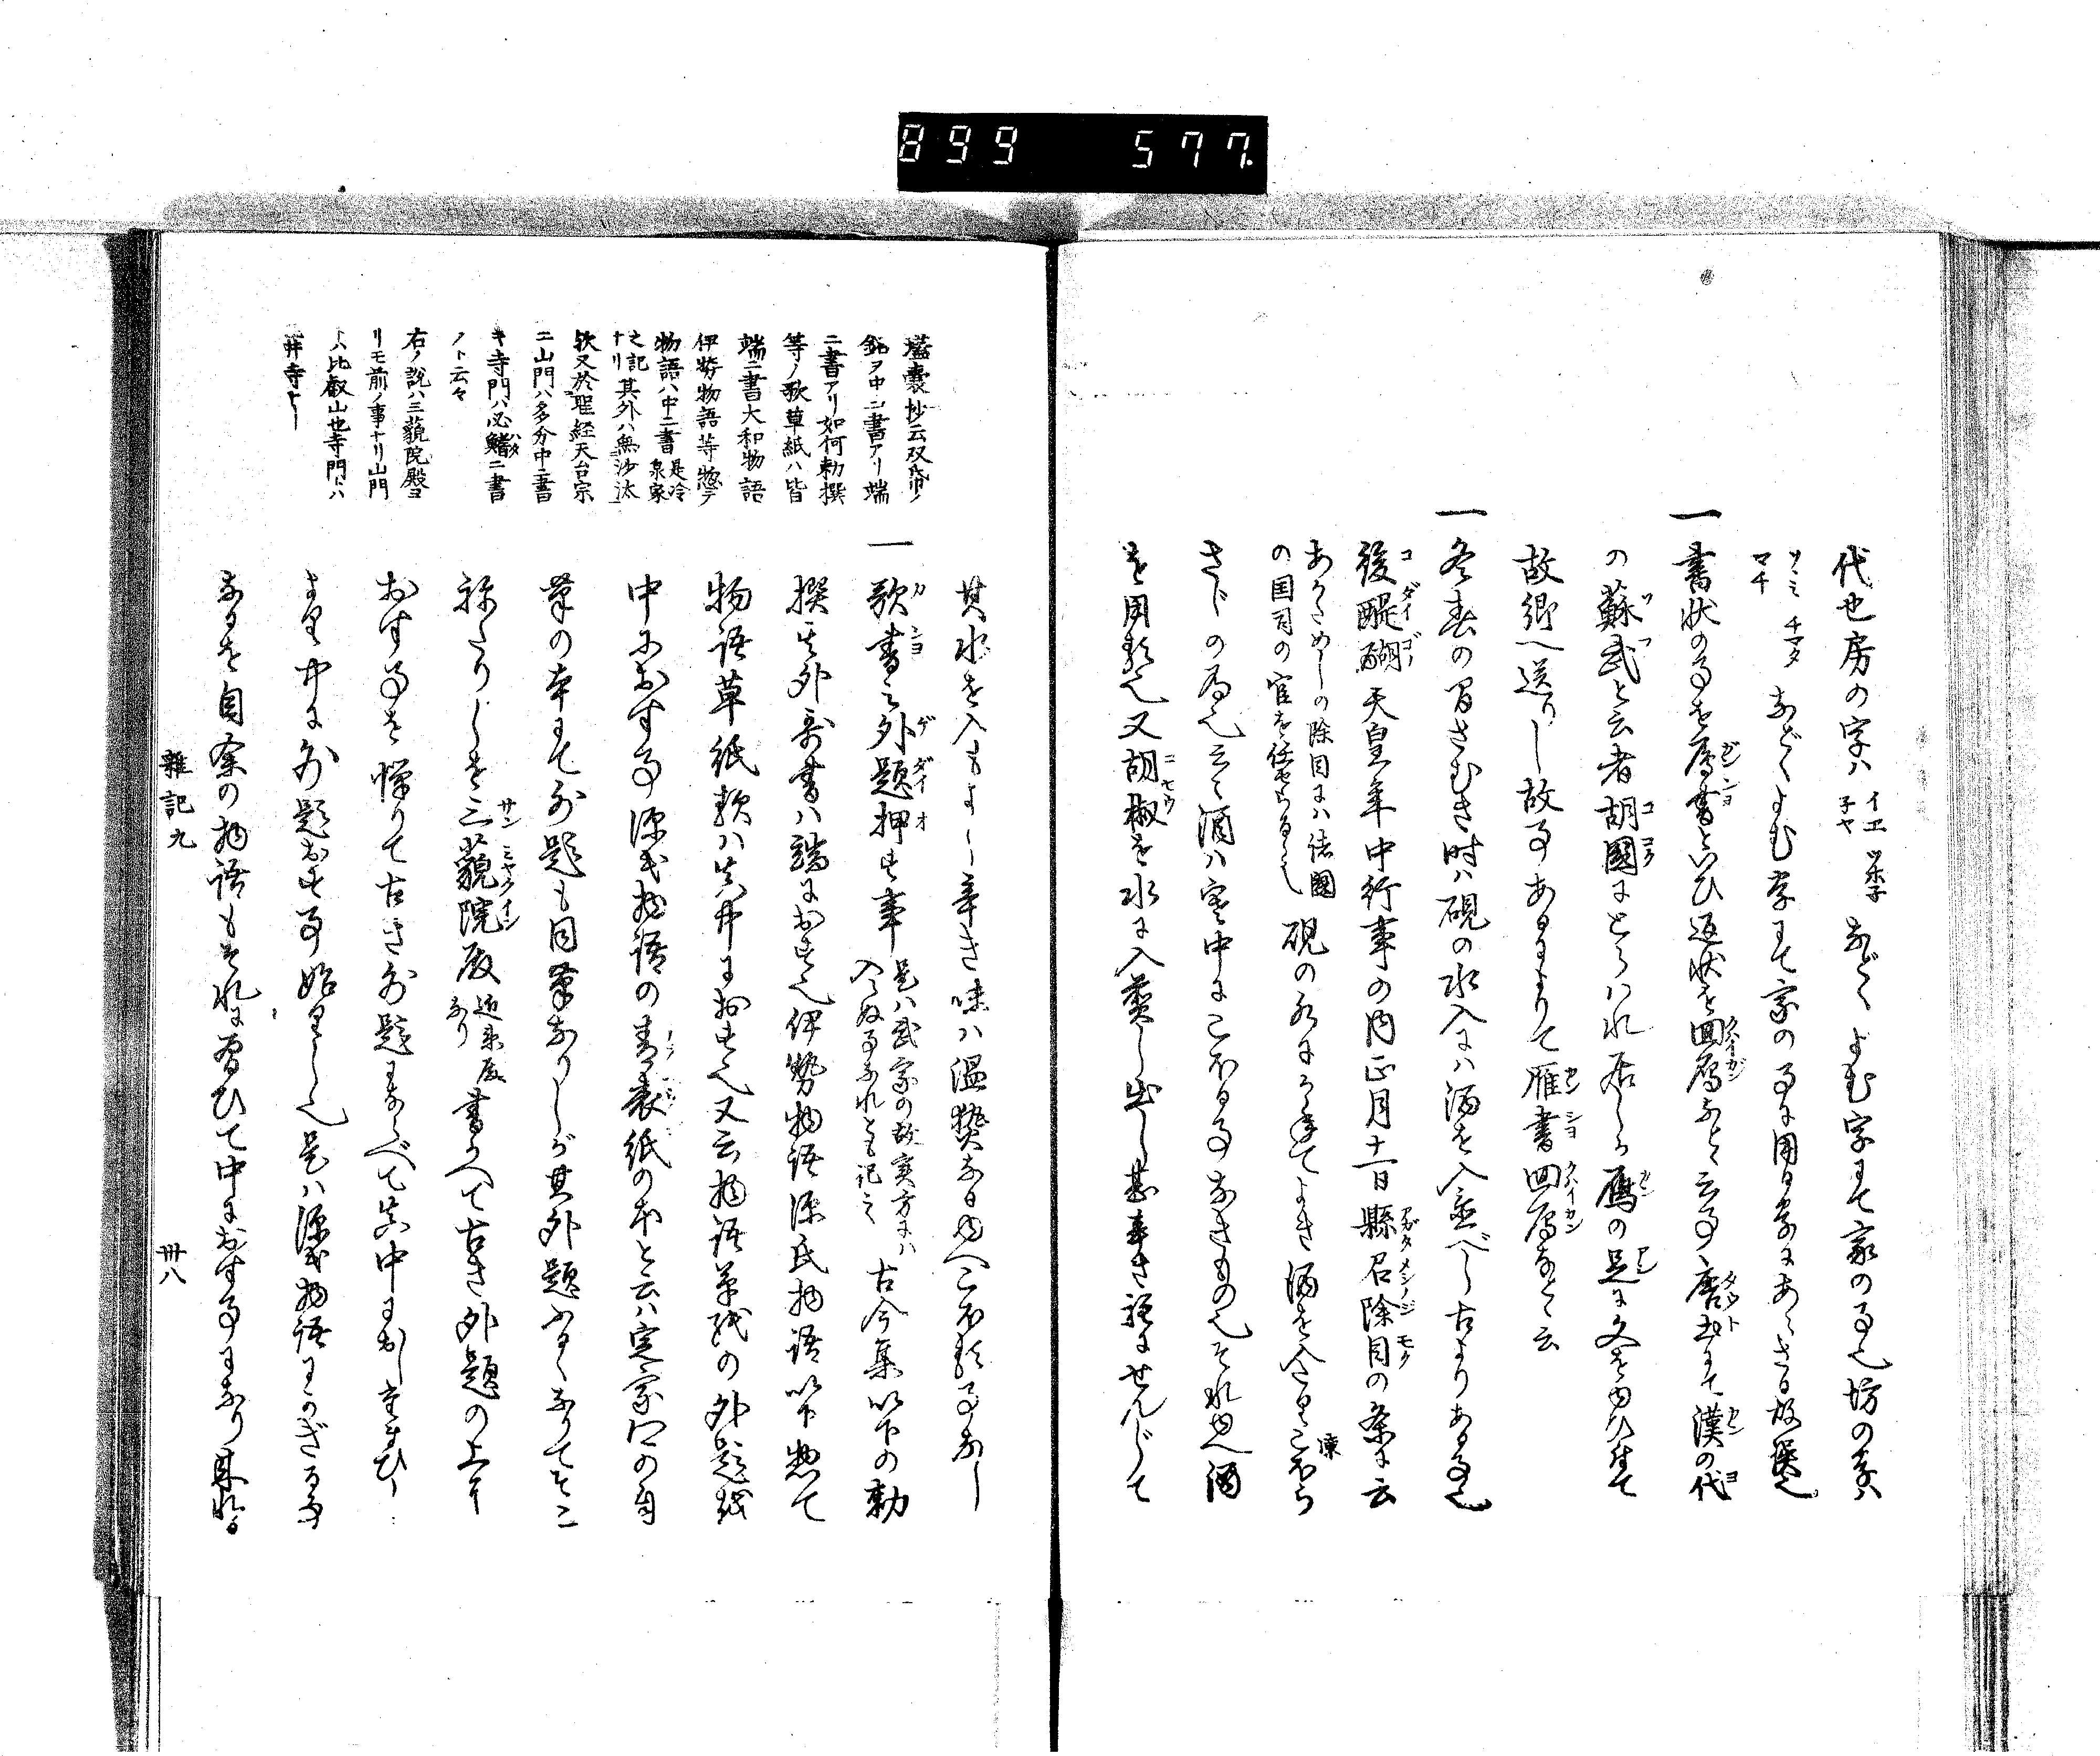 899 577.
代也房の字ハ イエ ツホ子 子ヤ などゝよむ字にて家の事也坊の字ハ
ソミ チマタ マチ などゝよむ字にて家の事に用る字にあらざる故
一書状の事を鴈書といひ返状を回鴈などゝ云事唐土にて漢の代
の蘇武と云者胡國にとらハれ居しか鴈の足に文をゆひ付て
故郷へ送りし故事あるによりて雁書回鴈などゝ云
一冬春の間さむき時ハ硯の水入にハ酒を入べし古よりある事也
後醍醐天皇年中行事の内正月十一日縣召除目の条に云
あがためしの除目にハ諸國の国司の官を任せらるゝ也 硯の水にかねてよき酒を入たりこほら
さじの為也云々酒ハ寒中にこほる事なきもの也それゆへ酒
を用る也又胡椒を水に入煎し出し甚辛き程にせんじて
其水を入もよし辛き味ハ温熱なるゆへこほる事なし
一歌書之外題押様事 是ハ武家の故実方にハ入らぬ事なれとも記之 古今集以下の勅
撰其外哥書ハ端におす也伊勢物語源氏物語以下惣て
物語草紙類ハ真中におす也又云物語草紙の外題を
中におす事源氏物語の青表紙の本と云ハ定家卿の自
筆の本にて外題も自筆なりしが其外題ふるくなりてそこ
ねたりしを三藐院殿 近衛殿なり 書かへて古き外題の上に
おす事を憚りて古き外題にならべて真中におし玉ひし
より中に外題おす事始りし也是ハ源氏物語にかぎる事
なるを自余の物語もそれに習ひて中におす事になり来れる
雑記九
卅八
壒囊抄云双帋ノ
銘ヲ中ニ書アリ端
ニ書アリ如何勅撰
等ノ歌草紙ハ皆
端ニ書大和物語
伊勢物語等惣テ
物語ハ中ニ書 是冷泉家
之記ナリ 其外ハ無沙汰
歟又於聖経天台宗
ニ山門ハ多分中ニ書
キ寺門ハ必鰭ニ書
ノト云々
右ノ説ハ三藐院殿ヨ
リモ前ノ事ナリ山門
トハ比叡山也寺門トハ
三井寺ナリ